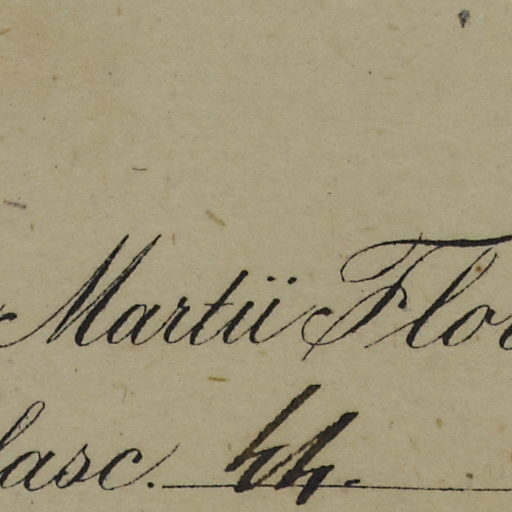 Martii Flo
asc. 44.